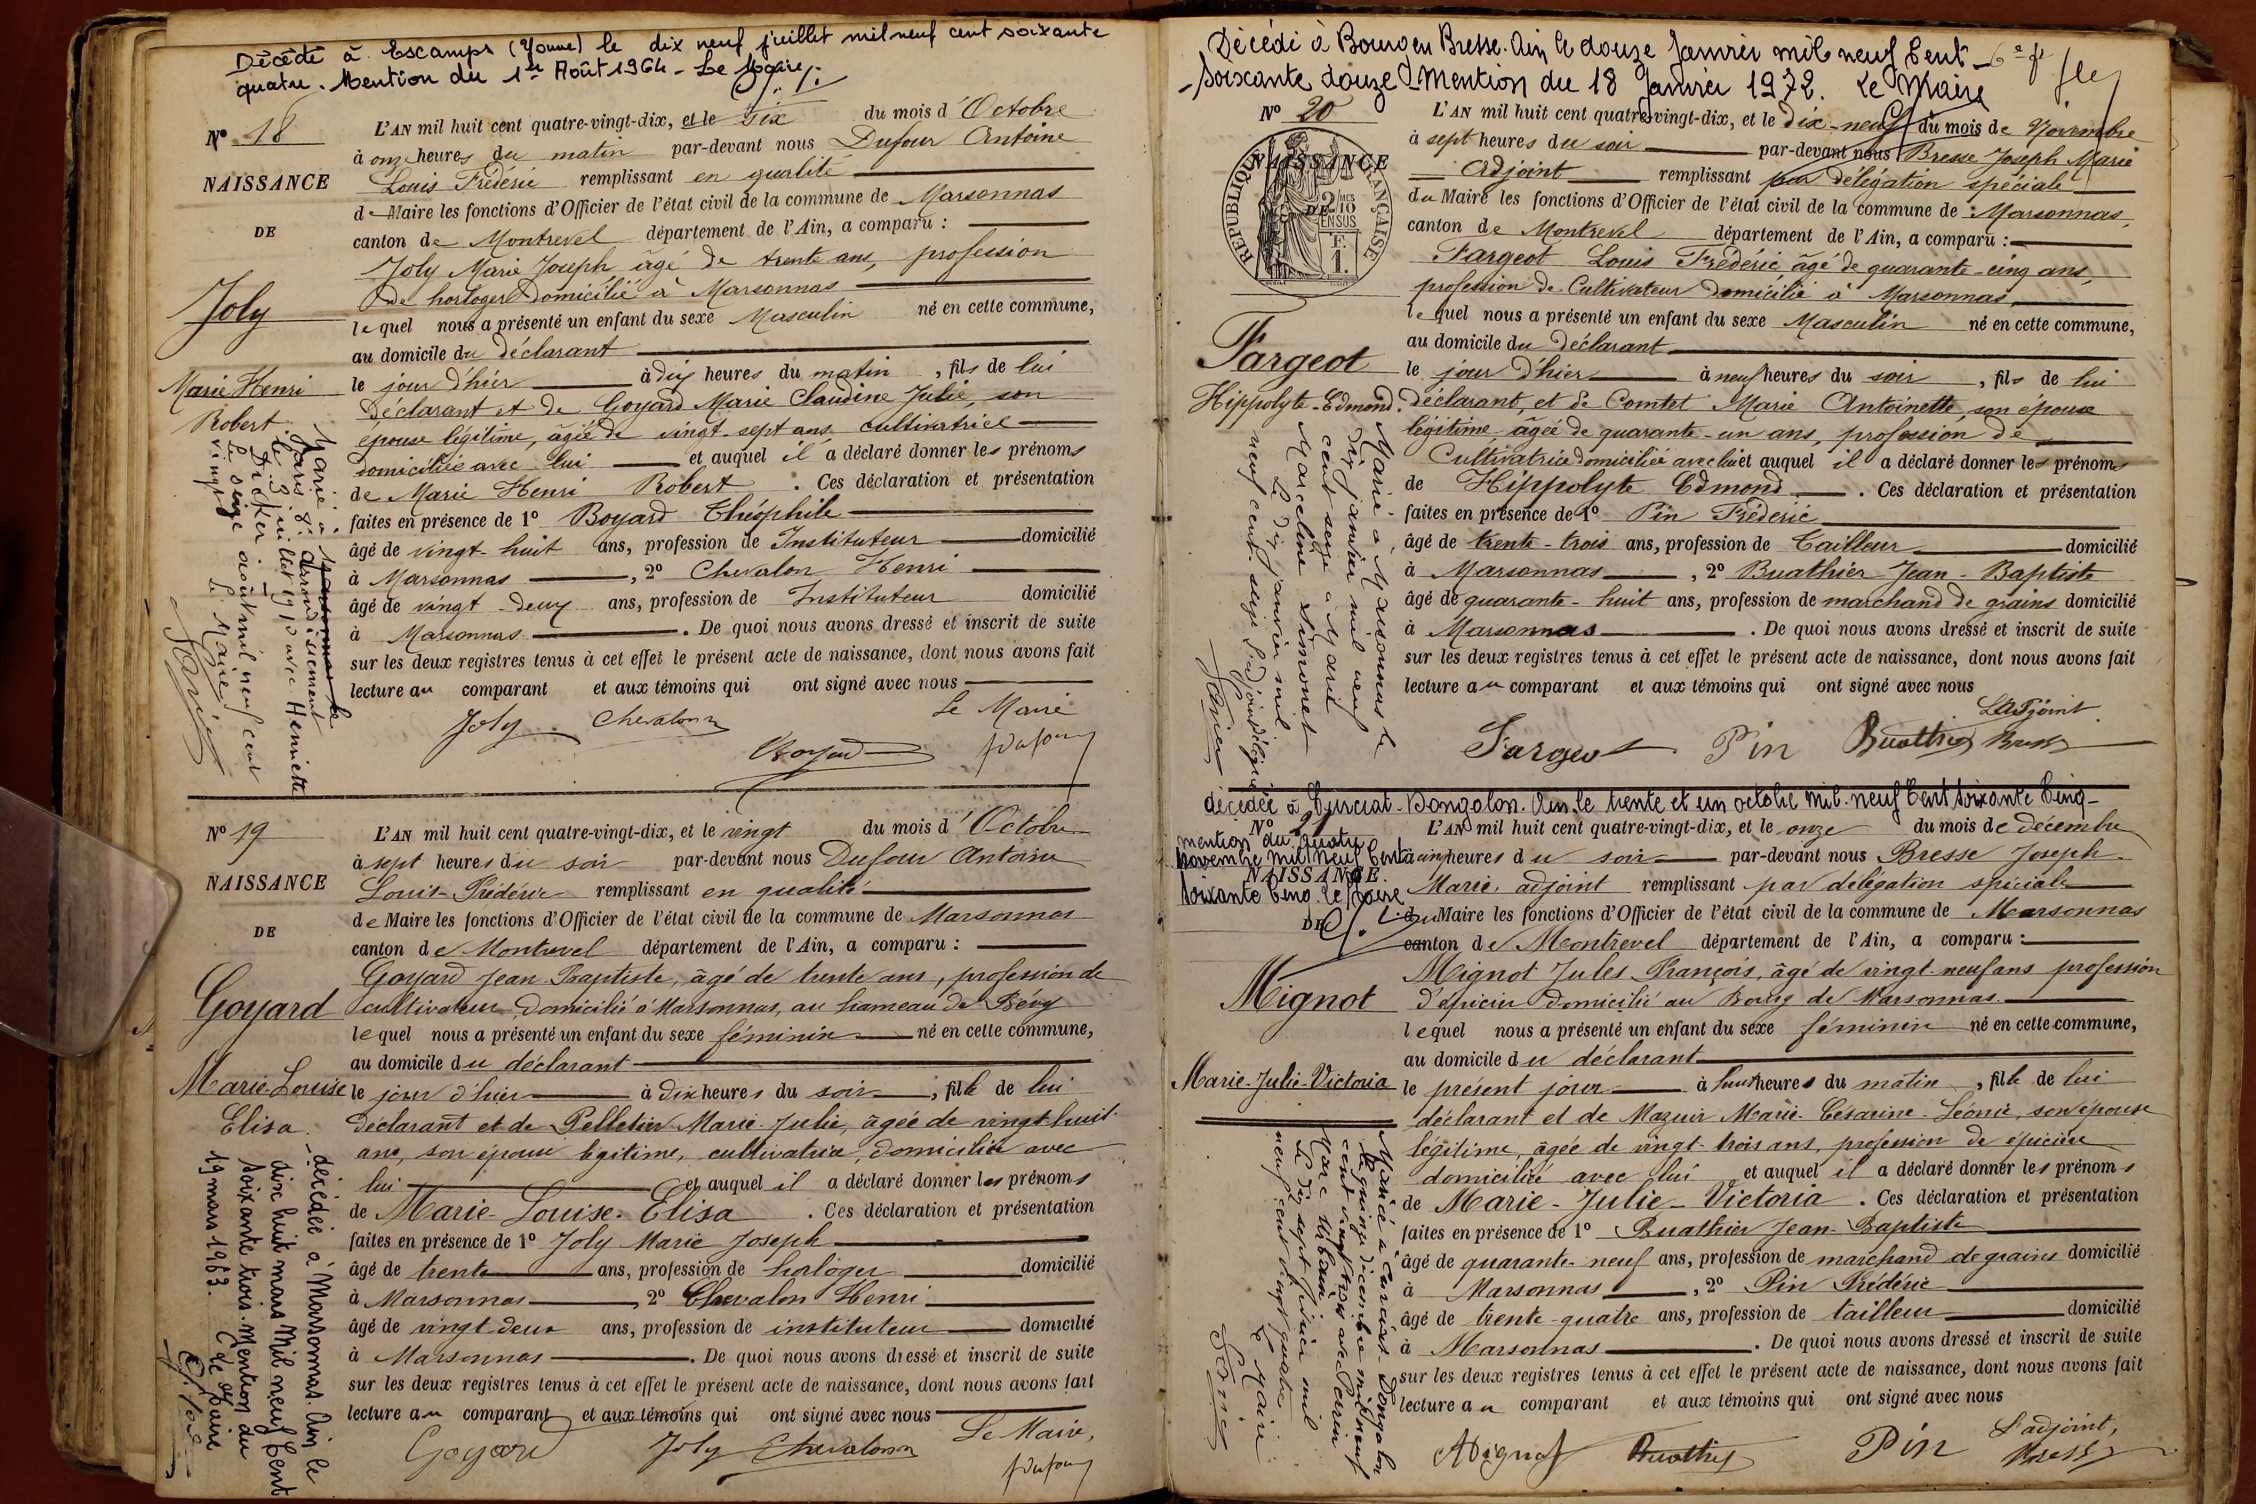 Décédé à Escamps (Yonne) le dix neuf juillet mil neuf cent soixante
quatre. Mention du 1er Août 1964 - Le Maire
N° 18
NAISSANCE
DE
Joly
Marie Henri
Robert
L'AN mil huit cent quatre-vingt-dix, et le six du mois d'Octobre
à onze heures du matin par-devant nous Dufour Antoine
Louis Frédéric remplissant en qualité
de Maire les fonctions d'Officier de l'état civil de la commune de Marsonnas
canton de Montrevel département de l'Ain, a comparu :
Joly Marie Joseph, âgé de trente ans, profession
de horloger domicilié à Marsonnas
lequel nous a présenté un enfant du sexe Masculin né en cette commune,
au domicile du déclarant
le jour d'hier à dix heures du matin, fils de lui
déclarant et de Goyard Marie Claudine Julie, son
épouse légitime, âgée de vingt-sept ans, cultivatrice
domiciliée avec lui et auquel il a déclaré donner les prénoms
de Marie Henri Robert. Ces déclaration et présentation
faites en présence de 1° Boyard Théophile
âgé de vingt-huit ans, profession de Instituteur domicilié
à Marsonnas, 2° Chevalon Henri
âgé de vingt-deux ans, profession de Instituteur domicilié
à Marsonnas. De quoi nous avons dressé et inscrit de suite
sur les deux registres tenus à cet effet le présent acte de naissance, dont nous avons fait
lecture au comparant et aux témoins qui ont signé avec nous
Le Maire
Joly Chevalon
Boyard
Marié à Marsonnas le
Paris 8e arrondissement
le 3 juillet 1920 avec Henriette
Dicker
Le seize août mil neuf cent
vingt
Le Maire
N° 19
NAISSANCE
DE
Goyard
Marie-Louise
Elisa
L'AN mil huit cent quatre-vingt-dix, et le vingt du mois d'Octobre
à sept heures du soir par-devant nous Dufour Antoine
Louis-Frédéric remplissant en qualité
de Maire les fonctions d'Officier de l'état civil de la commune de Marsonnas
canton de Montrevel département de l'Ain, a comparu :
Goyard Jean-Baptiste, âgé de trente ans, profession de
cultivateur domicilié à Marsonnas, au hameau de Bévy
lequel nous a présenté un enfant du sexe féminin né en cette commune,
au domicile du déclarant
le jour d'hier à dix heures du soir, fille de lui
déclarant et de Pelletier Marie-Julie, âgée de vingt-huit
ans, son épouse légitime, cultivatrice, domiciliée avec
lui et auquel il a déclaré donner les prénoms
de Marie-Louise-Elisa. Ces déclaration et présentation
faites en présence de 1° Joly Marie Joseph
âgé de trente ans, profession de horloger domicilié
à Marsonnas, 2° Chevalon Henri
âgé de vingt-deux ans, profession de instituteur domicilié
à Marsonnas. De quoi nous avons dressé et inscrit de suite
sur les deux registres tenus à cet effet le présent acte de naissance, dont nous avons fait
lecture au comparant et aux témoins qui ont signé avec nous
Le Maire,
Goyard Joly Chevalon
décédée à Marsonnas. Ain le
dix huit mars Mil neuf Cent
soixante trois. Mention du
19 mars 1963. Le Maire
Décédé à Bourg en Bresse. Ain le douze Janvier mil neuf Cent
soixante douze - Mention du 18 Janvier 1972. Le Maire
6e f
N° 20
NAISSANCE
DE
REPUBLIQUE FRANÇAISE
2/10
EN SUS
F.
1.
Fargeot
Hippolyte-Edmond.
L'AN mil huit cent quatre-vingt-dix, et le dix-neuf du mois de Novembre
à sept heures du soir par-devant nous Bresse Joseph Marie
Adjoint remplissant par délégation spéciale
du Maire les fonctions d'Officier de l'état civil de la commune de Marsonnas
canton de Montrevel département de l'Ain, a comparu :
Fargeot Louis Frédéric, âgé de quarante-cinq ans,
profession de Cultivateur domicilié à Marsonnas
lequel nous a présenté un enfant du sexe Masculin né en cette commune,
au domicile du déclarant
le jour d'hier à neuf heures du soir, fils de lui
déclarant, et de Comtet Marie Antoinette, son épouse
légitime âgée de quarante-un ans, profession de
Cultivatrice domiciliée avec lui et auquel il a déclaré donner les prénoms
de Hippolyte Edmond. Ces déclaration et présentation
faites en présence de 1° Pin Frédéric
âgé de trente-trois ans, profession de Tailleur domicilié
à Marsonnas, 2° Buathier Jean-Baptiste
âgé de quarante-huit ans, profession de marchand de grains domicilié
à Marsonnas. De quoi nous avons dressé et inscrit de suite
sur les deux registres tenus à cet effet le présent acte de naissance, dont nous avons fait
lecture au comparant et aux témoins qui ont signé avec nous
L'Adjoint
Fargeot Pin Buathier Bresse
Marié à Marsonnas le
dix janvier mil neuf
cent seize à Marie
Marceline Simonet
Le dix janvier mil
neuf cent seize L'adjoint délégué
décédée à Curciat-Dongalon. Ain le trente et un octobre mil neuf Cent soixante Cinq
mention du quatre
Novembre Mil neuf Cent
soixante Cinq. Le Maire
N° 21
NAISSANCE
DE
Mignot
Marie-Julie-Victoria
L'AN mil huit cent quatre-vingt-dix, et le onze du mois de décembre
à cinq heures du soir par-devant nous Bresse Joseph
Marie, adjoint remplissant par délégation spéciale
du Maire les fonctions d'Officier de l'état civil de la commune de Marsonnas
canton de Montrevel département de l'Ain, a comparu :
Mignot Jules François, âgé de vingt-neuf ans profession
d'épicier domicilié au Bourg de Marsonnas
lequel nous a présenté un enfant du sexe féminin né en cette commune,
au domicile du déclarant
le présent jour à huit heures du matin, fille de lui
déclarant et de Mazuir Marie-Césarine-Léonie, son épouse
légitime, âgée de vingt-trois ans, profession de épicière
domiciliée avec lui et auquel il a déclaré donner les prénoms
de Marie-Julie-Victoria. Ces déclaration et présentation
faites en présence de 1° Buathier Jean-Baptiste
âgé de quarante-neuf ans, profession de marchand de grains domicilié
à Marsonnas, 2° Pin Frédéric
âgé de trente-quatre ans, profession de tailleur domicilié
à Marsonnas. De quoi nous avons dressé et inscrit de suite
sur les deux registres tenus à cet effet le présent acte de naissance, dont nous avons fait
lecture au comparant et aux témoins qui ont signé avec nous
L'adjoint,
Mignot Buathier Pin Bresse
Mariée à Curciat-Dongalon
le quinze décembre mil neuf
cent vingt trois avec Perrin
Marc Urbain
Le dix sept février mil
neuf cent vingt quatre
Le Maire